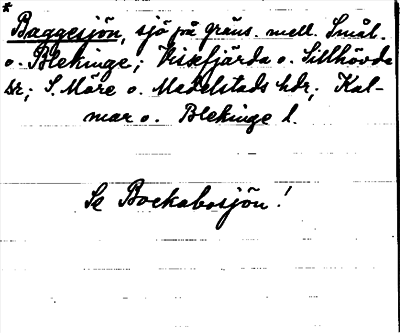 * Baggesjön, sjö på gräns. mell. Smål.
o. Blekinge; Vissefjärda o. Sillhövda
sr; S. Möre o. Medelstads hdr; Kal-
mar o. Blekinge l.
Se Bockabosjön!